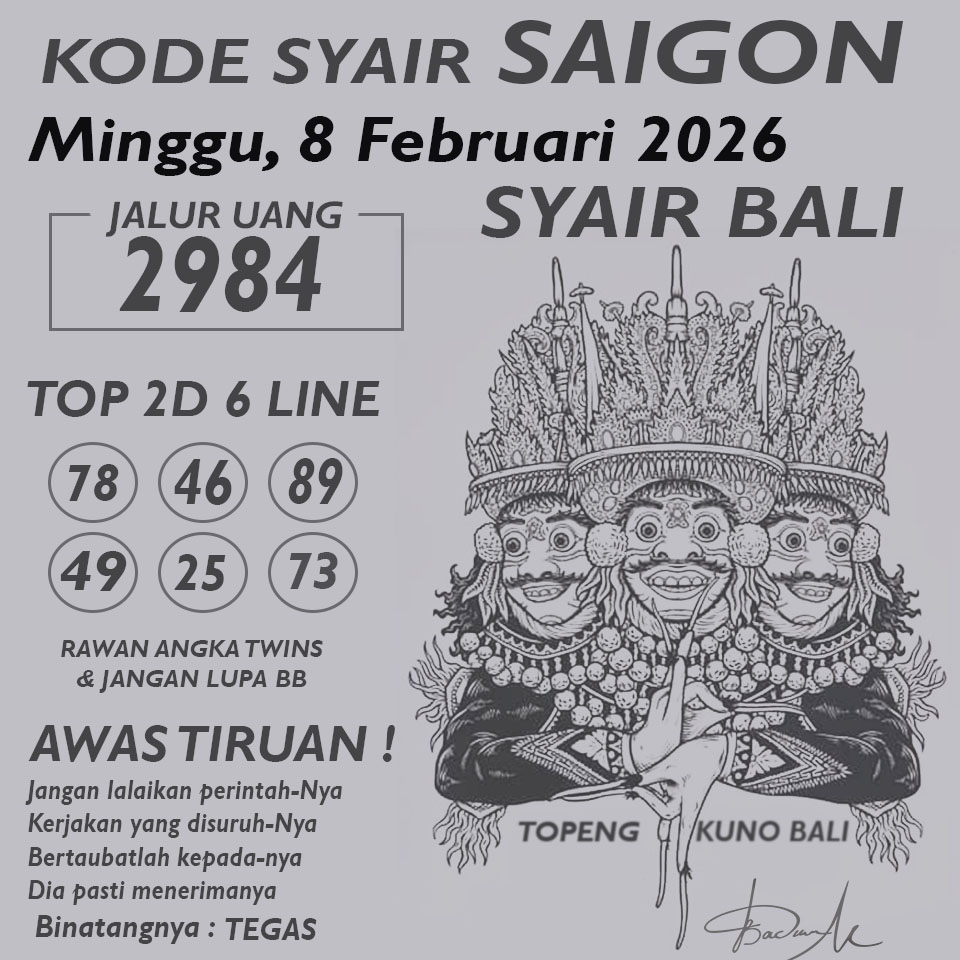 KODE SYAIR SAIGON
Minggu, 8 Februari 2026
SYAIR BALI
JALUR UANG
2984
TOP 2D 6 LINE
78 46 89
49 25 73
RAWAN ANGKA TWINS
& JANGAN LUPA BB
AWAS TIRUAN !
Jangan lalaikan perintah-Nya
Kerjakan yang disuruh-Nya
Bertaubatlah kepada-nya
Dia pasti menerimanya
Binatangnya : TEGAS
TOPENG KUNO BALI